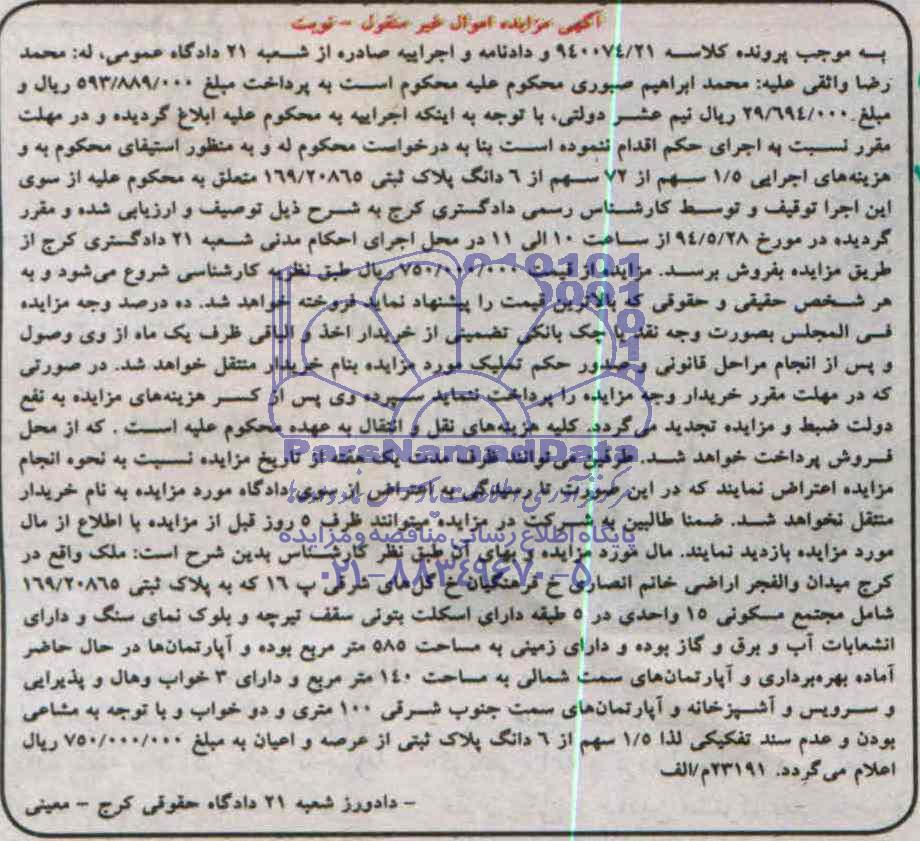 آگهی مزایده اموال غیر منقول - نوبت
به موجب پرونده کلاسه ۹۴۰۰۷۴/۲۱ و دادنامه و اجراییه صادره از شعبه ۲۱ دادگاه عمومی، له: محمد
رضا واثقی علیه: محمد ابراهیم صبوری محکوم علیه محکوم است به پرداخت مبلغ ۵۹۳/۸۸۹/۰۰۰ ریال و
مبلغ ۲۹/۶۹۴/۰۰۰ ریال نیم عشر دولتی، با توجه به اینکه اجراییه به محکوم علیه ابلاغ گردیده و در مهلت
مقرر نسبت به اجرای حکم اقدام ننموده است بنا به درخواست محکوم له و به منظور استیفای محکوم به و
هزینه‌های اجرایی ۱/۵ سهم از ۷۲ سهم از ۶ دانگ پلاک ثبتی ۱۶۹/۲۰۸۶۵ متعلق به محکوم علیه از سوی
این اجرا توقیف و توسط کارشناس رسمی دادگستری کرج به شرح ذیل توصیف و ارزیابی شده و مقرر
گردیده در مورخ ۹۴/۵/۲۸ از ساعت ۱۰ الی ۱۱ در محل اجرای احکام مدنی شعبه ۲۱ دادگستری کرج از
طریق مزایده بفروش برسد. مزایده از قیمت ۷۵۰/۰۰۰/۰۰۰ ریال طبق نظریه کارشناسی شروع می‌شود و به
هر شخص حقیقی و حقوقی که بالاترین قیمت را پیشنهاد نماید فروخته خواهد شد. ده درصد وجه مزایده
فی المجلس بصورت وجه نقد یا چک بانکی تضمینی از خریدار اخذ و الباقی ظرف یک ماه از وی وصول
و پس از انجام مراحل قانونی و صدور حکم تملیک مورد مزایده بنام خریدار منتقل خواهد شد. در صورتی
که در مهلت مقرر خریدار وجه مزایده را پرداخت ننماید سپرده وی پس از کسر هزینه‌های مزایده به نفع
دولت ضبط و مزایده تجدید می‌گردد. کلیه هزینه‌های نقل و انتقال به عهده محکوم علیه است . که از محل
فروش پرداخت خواهد شد. طرفین می‌توانند ظرف مدت یک هفته از تاریخ مزایده نسبت به نحوه انجام
مزایده اعتراض نمایند که در این صورت تا رسیدگی به اعتراض از سوی دادگاه مورد مزایده به نام خریدار
منتقل نخواهد شد. ضمنا طالبین به شرکت در مزایده میتوانند ظرف ۵ روز قبل از مزایده با اطلاع از مال
مورد مزایده بازدید نمایند. مال مورد مزایده و بهای آن طبق نظر کارشناس بدین شرح است: ملک واقع در
کرج میدان والفجر اراضی خانم انصاری خ فرهنگیان خ گل‌های شرقی پ ۱۶ که به پلاک ثبتی ۱۶۹/۲۰۸۶۵
شامل مجتمع مسکونی ۱۵ واحدی در ۵ طبقه دارای اسکلت بتونی سقف تیرچه و بلوک نمای سنگ و دارای
انشعابات آب و برق و گاز بوده و دارای زمینی به مساحت ۵۸۵ متر مربع بوده و آپارتمان‌ها در حال حاضر
آماده بهره‌برداری و آپارتمان‌های سمت شمالی به مساحت ۱۴۰ متر مربع و دارای ۳ خواب وهال و پذیرایی
و سرویس و آشپزخانه و آپارتمان‌های سمت جنوب شرقی ۱۰۰ متری و دو خواب و با توجه به مشاعی
بودن و عدم سند تفکیکی لذا ۱/۵ سهم از ۶ دانگ پلاک ثبتی از عرصه و اعیان به مبلغ ۷۵۰/۰۰۰/۰۰۰ ریال
اعلام می‌گردد. ۲۳۱۹۱/م/الف
- دادورز شعبه ۲۱ دادگاه حقوقی کرج - معینی
ParsNamadData
پایگاه اطلاع رسانی مناقصه و مزایده
۰۲۱-۸۸۳۴۹۶۷۰-۵